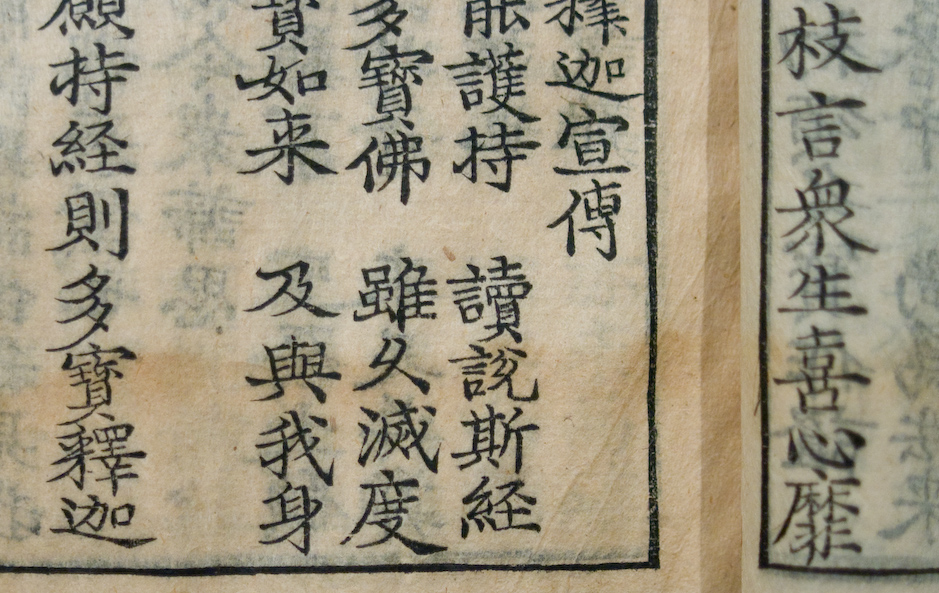 枝言衆生喜心靡
釋迦宣傳
能護持　讀説斯経
多寶佛　雖久滅度
寶如来　及與我身
願持経則多寶釋迦